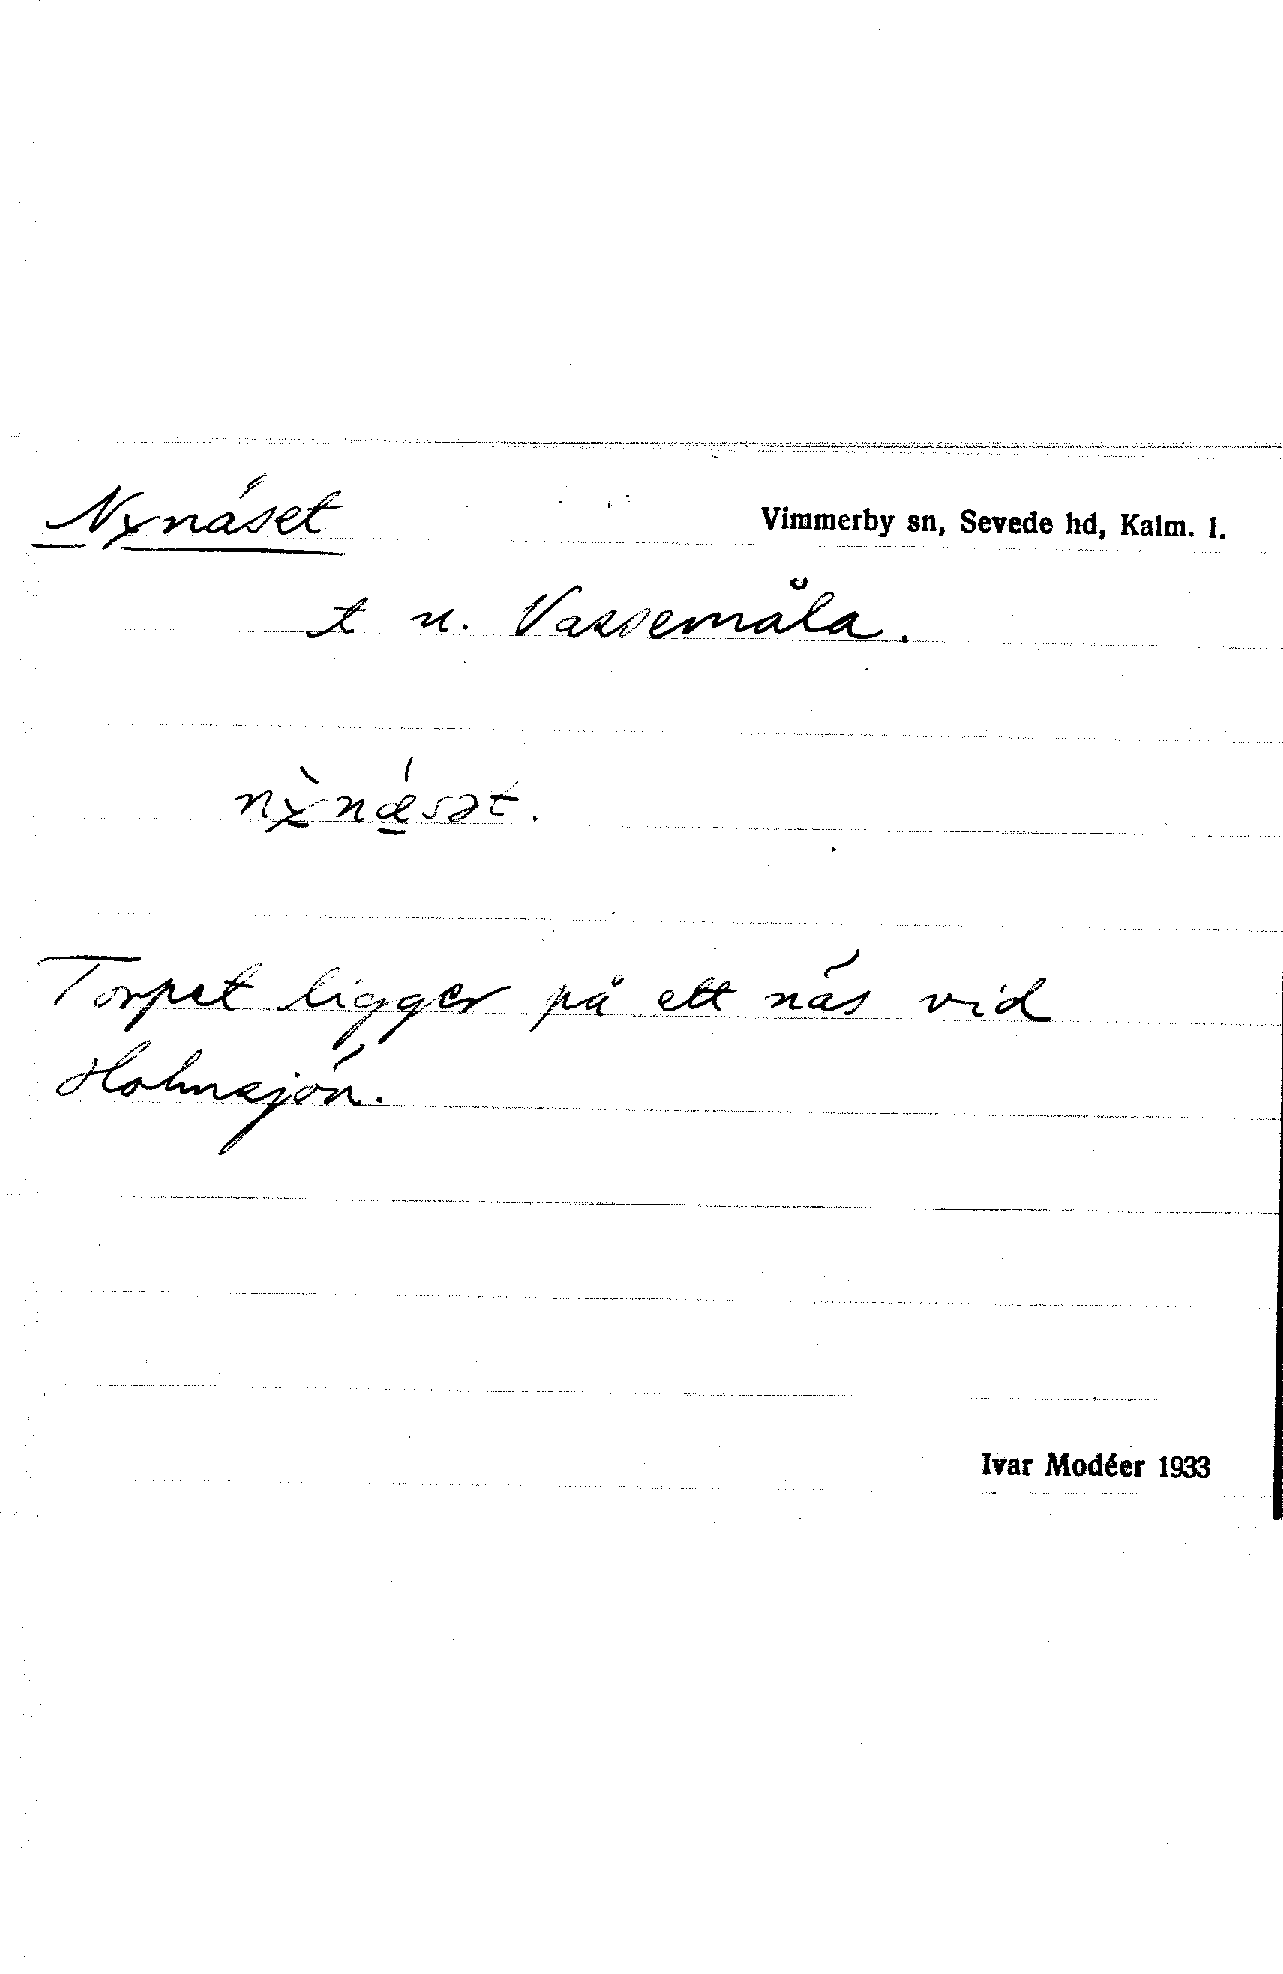 Nynäset Vimmerby sn, Sevede hd, Kalm. l.
t u. Vassemåla.
nỳnǽsət.
Torpet ligger på ett näs vid
Holmsjön.
Ivar Modéer 1933